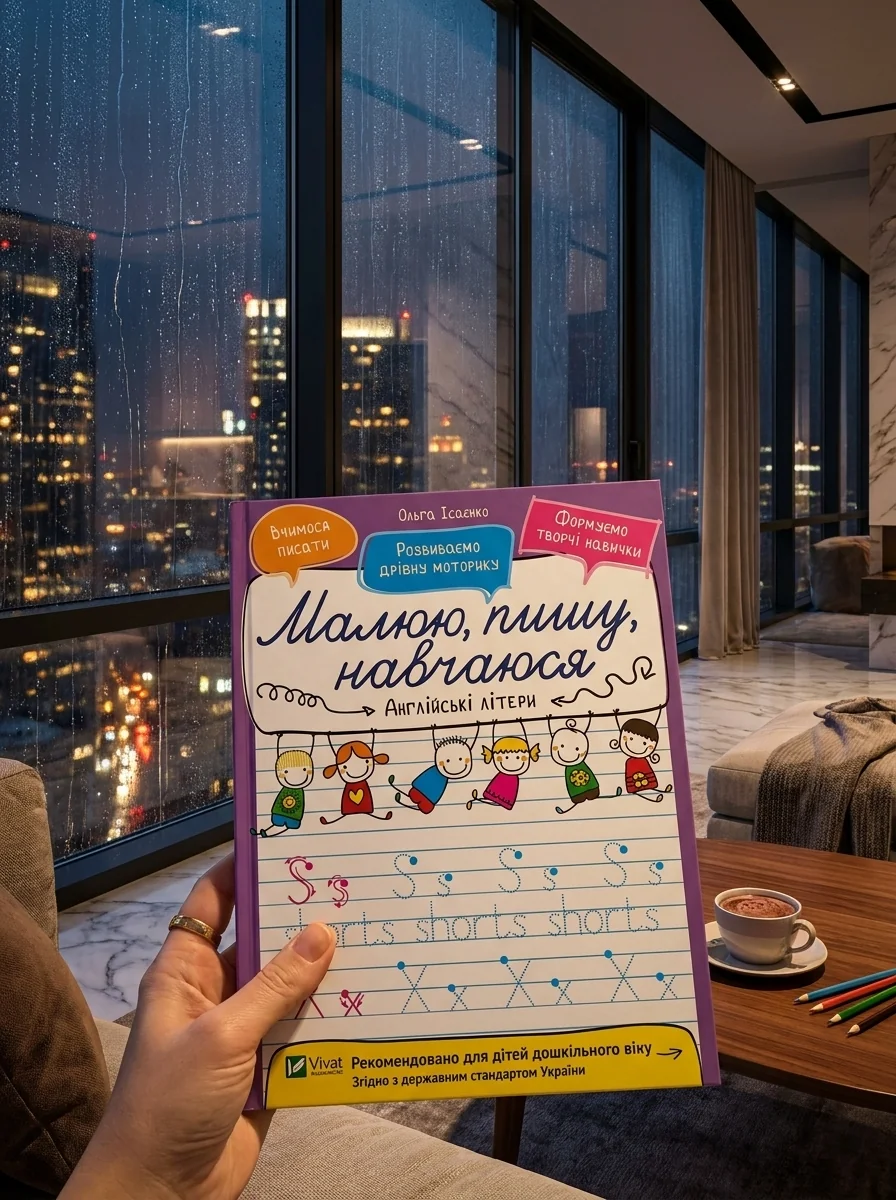 Ольга Ісаєнко
Вчимося
писати
Розвиваємо
дрівну моторику
Формуємо
творчі навички
Малюю, пишу,
навчаюся
Англійські літери
S s S s S s S s
shorts shorts shorts
X x X x X x X x
Vivat
Рекомендовано для дітей дошкільного віку
Згідно з державним стандартом України